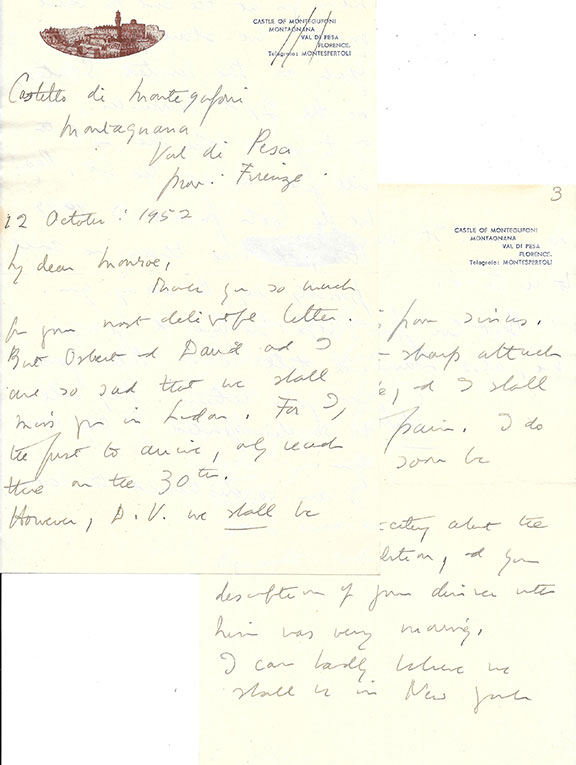 CASTLE OF MONTEGUFONI
MONTAGNANA
VAL DI PESA
FLORENCE.
Telegrafo: MONTESPERTOLI
Castello di Montegufoni
Montagnana
Val di Pesa
prov: Firenze.
12 October: 1952
My dear Monroe,
Thank you so much
for your most delightful letter.
But Osbert & David and I
are so sad that we shall
miss you in London. For I,
the first to arrive, only reach
there on the 30th.
However, D.V. we shall be
3
CASTLE OF MONTEGUFONI
MONTAGNANA
VAL DI PESA
FLORENCE.
Telegrafo: MONTESPERTOLI
from sinus.
sharp attack
, & I shall
pain. I do
soon be
about the
, & your
description of your dinner with
him was very moving.
I can hardly believe we
shall be in New York